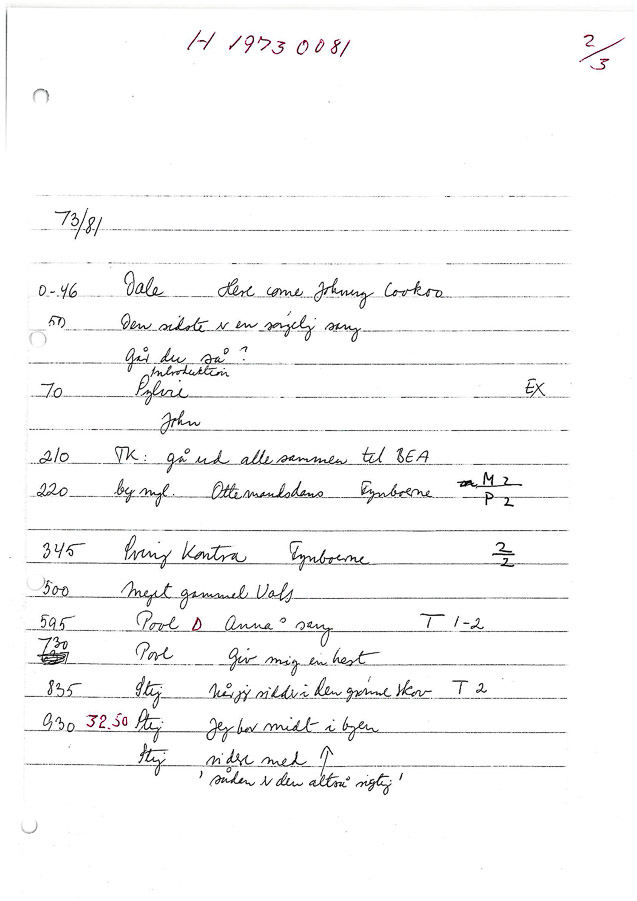 H 1973 0081
2/3
73/81
0-46 Dale Here come Johnny Cookoo
50 Den sidste er en sørgelig sang
Går du så?
Introduktion
70 EX
John
210 TK: gå ud allesammen til BEA
220 beg mgl. Ottemandsdans Fynboerne M2
P2
345 Kontra Fynboerne 2/2
500 Meget gammel Vals
595 Povl D Anna's sang T 1-2
730 Povl Giv mig en hest
835 Stig når jeg sidder i den grønne skov T 2
930 32.50 Stig Jeg bor midt i byen
Stig videre med ↑
'sådan er den altså rigtig'